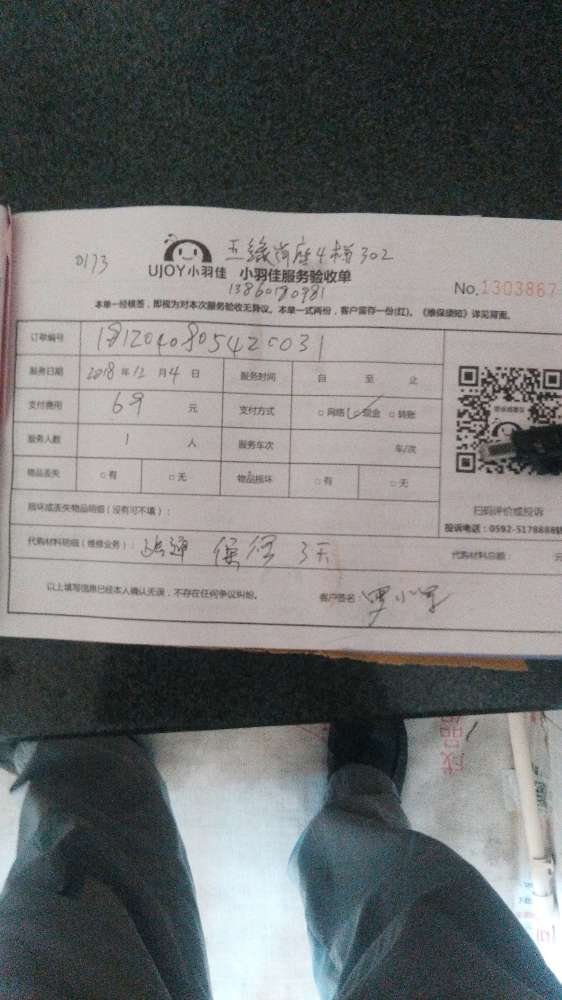 0173
五缘尚座4梯302
UJOY小羽佳 小羽佳服务验收单
13860180981
No.1303867
本单一经核签，即视为对本次服务验收无异议。本单一式两份，客户留存一份(红)。《维保须知》详见背面。
订单编号 181204080542C031
服务日期 2018年12月4日 服务时间 自 至 止
支付费用 69 元 支付方式 □网络 ☑现金 □转账
服务人数 1 人 服务车次 车/次
物品丢失 □有 □无 物品损坏 □有 □无
扫码评价或投诉
损坏或丢失物品明细（没有可不填）：
投诉电话：0592-5178888
代购材料明细（维修业务）： 疏通 保修 3天 代购材料总额： 元
以上填写信息已经本人确认无误，不存在任何争议纠纷。 客户签名：
成品